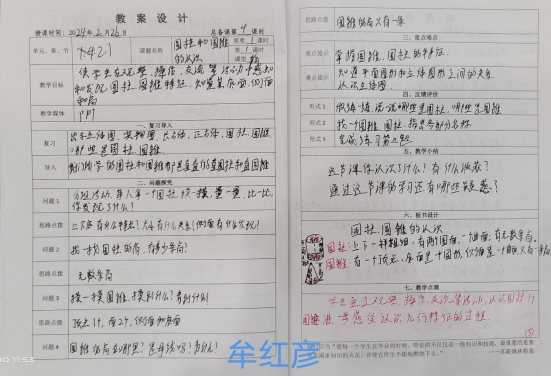 教案设计
授课时间：2024年2月26日 总备课第9课时
单元、章、节 1.4.2.1 课题名称 圆柱和圆锥的认识 需要1课时
第1课时
课型 新
教学目标 使学生在观察、操作、交流等活动中感知和发现圆柱、圆锥特征，知道底面、侧面和高
教学媒体 PPT
一、复习导入
复习 出示立体图，长方体、正方体、圆柱、圆锥
哪些是圆柱 圆锥
导入 我们所学的圆柱和圆锥都是直直的直圆柱和直圆锥
二、问题探究
问题1 分组活动，每人拿一个圆柱，摸一摸，量一量，比一比，你发现了什么？
思路点拨 上下底有什么特点？大小有什么关系？侧面有什么发现？
问题2 找一找圆柱的高，有多少条高？
思路点拨 无数条高
问题3 摸一摸圆锥，摸到什么？看到什么
思路点拨 顶点1个，面2个，侧面和底面
问题4 圆锥的高在哪里？是母线吗？为什么？
思路点拨 圆锥的高只有一条
三、重点难点
重点提示 掌握圆锥、圆柱的特征
难点提示 知道平面图形和立体图形之间的关系，认识立体图
四、反馈评价
形式1 做练一练，说一说哪些是圆柱，哪些是圆锥
形式2 找一个圆锥、圆柱，指出各部分名称
形式3 完成练习第三题
五、教学小结
这节课你认识了什么？有什么收获？
通过这节课的学习还有哪些疑惑？
六、板书设计
圆柱、圆锥的认识
圆柱：上下一样粗细，有两个圆面，一个曲面，有无数条高
圆锥：有一个顶点，底面是个圆形，侧面是一个曲面，只有一条高
七、教学点滴
学生通过观察、操作、交流等活动，认识圆柱
圆锥，进一步感受认识几何特征的过程
应为“使每一个学生在毕业的时候，带走的不仅仅是一些知识和技能，最重要的是要带走渴求知识的火花，并使它终生不熄地燃烧下去。”
——苏霍姆林斯基
10 11:53
牟红彦